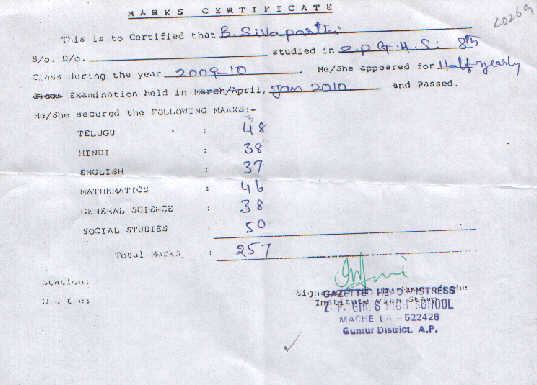 20269
MARKS CERTIFICATE
This is to Certified that B. Sivaparvathi
S/o. D/o. studied in Z.P.G.H.S. 8th
Class during the year 2009-10. He/She appeared for Half yearly
Examination held in March/April, Jan 2010 and Passed.
He/She secured the FOLLOWING MARKS:-
TELUGU : 48
HINDI : 38
ENGLISH : 37
MATHEMATICS : 46
GENERAL SCIENCE : 38
SOCIAL STUDIES : 50
Total Marks : 257
Station:
Date:
GAZETTE HEAD MISTRESS
Z.P. GIRLS HIGH SCHOOL
MACHERLA - 522426
Guntur District, A.P.